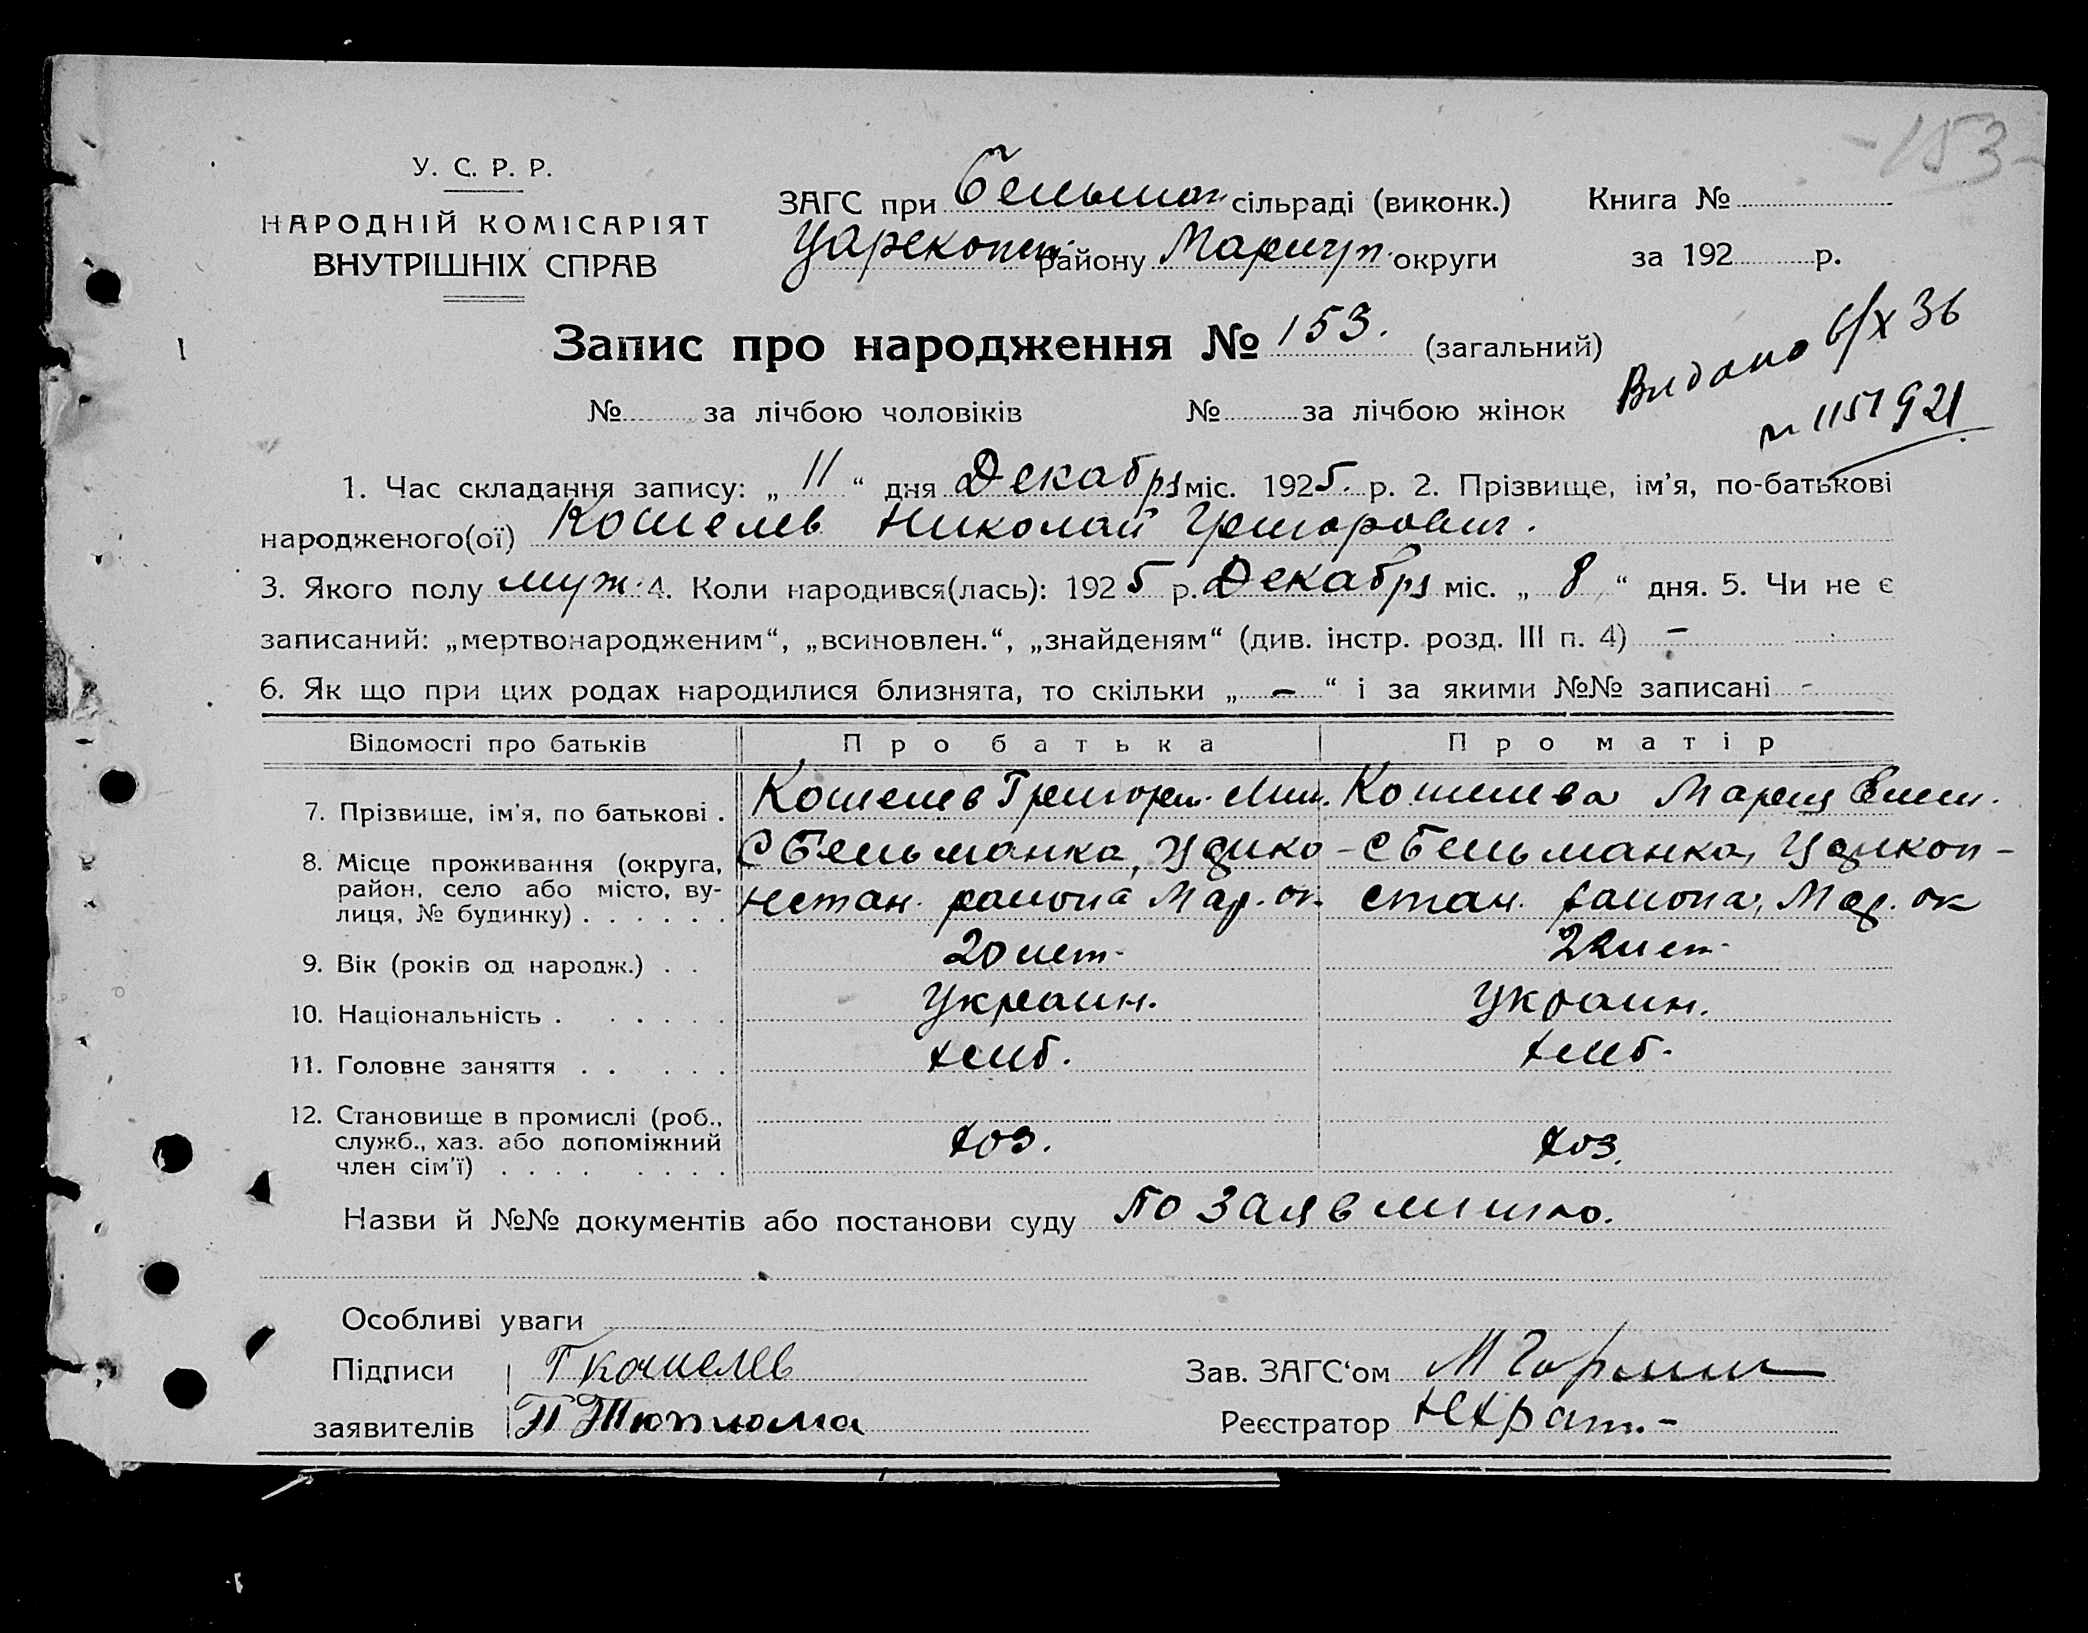 -153-
У. С. Р. Р.
НАРОДНІЙ КОМІСАРІЯТ
ВНУТРІШНІХ СПРАВ
ЗАГС при Бельман сільраді (виконк.) Книга №
Царекопст. району Мариуп. округи за 192 р.
Запис про народження № 153. (загальний)
Видано 6/X 36
№ 1151921
№ за лічбою чоловіків № за лічбою жінок
1. Час складання запису: „ 11 “ дня Декабря міс. 1925. р. 2. Прізвище, ім’я, по-батькові
народженого(ої) Кошелев Николай Григорович.
3. Якого полу муж. 4. Коли народився(лась): 1925 р. Декабря міс. „ 8 “ дня. 5. Чи не є
записаний: „мертвонародженим“, „всиновлен.“, „знайденям“ (див. інстр. розд. III п. 4) -
6. Як що при цих родах народилися близнята, то скільки „ - “ і за якими №№ записані -
Відомості про батьків Про батька Про матір
7. Прізвище, ім’я, по батькові . Кошелев Григори. Кошелева Мария
8. Місце проживання (округа, район, село або місто, вулиця, № будинку) . . . . . . С Бельманка, района Мар. ок. С Бельманка, района, Мар. ок
9. Вік (років од народж.) . . 20 лет. 22 лет.
10. Національність . . . . . . Украин. Украин.
11. Головне заняття . . . . . хлиб. хлиб.
12. Становище в промислі (роб., служб., хаз. або допоміжний член сім’ї) . . . . . . . . хоз. хоз.
Назви й №№ документів або постанови суду по заявлинию.
Особливі уваги
Підписи Г Кошелев Зав. ЗАГС‘ом
заявителів Реєстратор